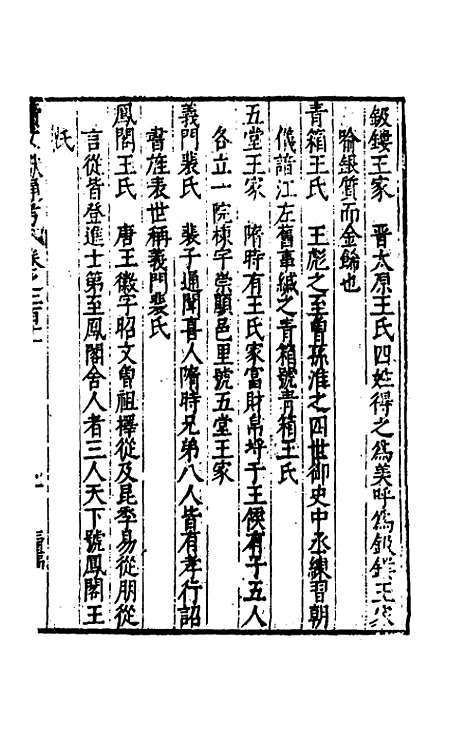 鈒鏤王家　晋太原王氏四姓得之爲美呼爲鈒鏤王家
喻銀質而金餙也
青箱王氏　王彪之至曾孫淮之四世御史中丞練習朝
儀諳江左舊事緘之青箱號青箱王氏
五堂王家　隋時有王氏家富財帛埒于王候有子五人
各立一院棟宇崇顯邑里號五堂王家
義門裴氏　裴子通聞喜人隋時兄弟八人皆有孝行詔
書旌表世稱義門裴氏
鳳閣王氏　唐王徽字昭文曾祖擇從及昆季易從朋從
言從皆登進士第至鳳閣舍人者三人天下號鳳閣王
氏
文獻通考 卷之二百十一